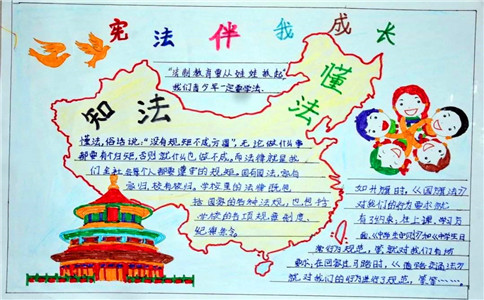 宪法伴我成长
"法制教育要从娃娃抓起"
我们青少年一定要学法。
懂法
知法
懂法,俗话说:"没有规矩不成方圆",无论做什么事
都要有个规矩,否则就什么也做不成。而法律就是我
们全社会每个人都要遵守的规矩。国有国法,家有
家规,校有校规。学校里的法律既包
括国家的各种法规,也包括
学校的各项规章制度、
纪律等。
如升旗时,《国旗法》
对我们的行为要求就
有了约束,在上课、学习方
面,《中学生守则》和《中学生日
常行为规范》,等就对我们有所
要求,在回家过马路时,《道路交通法》
就对我们的行为进行了规范,等等……